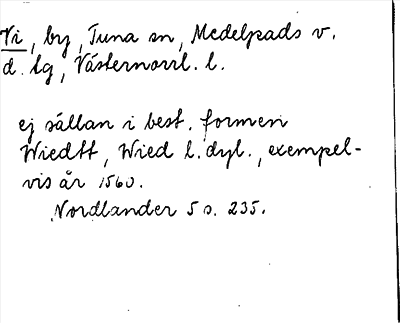 Vi, by, Tuna sn, Medelpads v.
d. tg, Västernorrl. l.
ej sällan i best. formen
Wiedtt, Wied l. dyl., exempel-
vis år 1560.
Nordlander 5 s. 235.